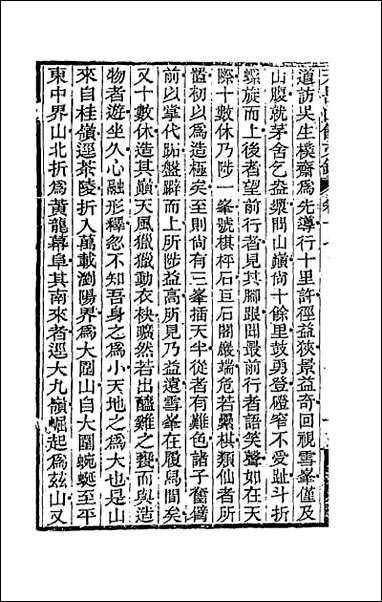 道訪吳生樸齋爲先導行十里許徑益狹景益奇回視雪峯僅及
山腹就茅舍乞益漿問山巔尚十餘里鼓勇登磴窄不受趾斗折
螺旋而上後者望前行者見其腳跟聞最前行者語笑聲如在天
際十數休乃陟一峯號棋枰石巨石闘嚴端危若纍棋類仙者所
置初以爲造極矣至則尚有三峯插天半從者有難色諸子奮臂
前以掌代跖盤辟而上所陟益高所見乃益遠雪峯在履舄間矣
又十數休造其巔天風獵獵動衣袂曠然若出醯雞之甕而與造
物者遊坐久心融形釋忽不知吾身之爲小天地之爲大也是山
來自桂嶺逕茶陵折入萬載瀏陽界爲大圍山自大圍蜿蜒至平
東中界山北折爲黃龍幕阜其南來者逕大九嶺崛起爲茲山又